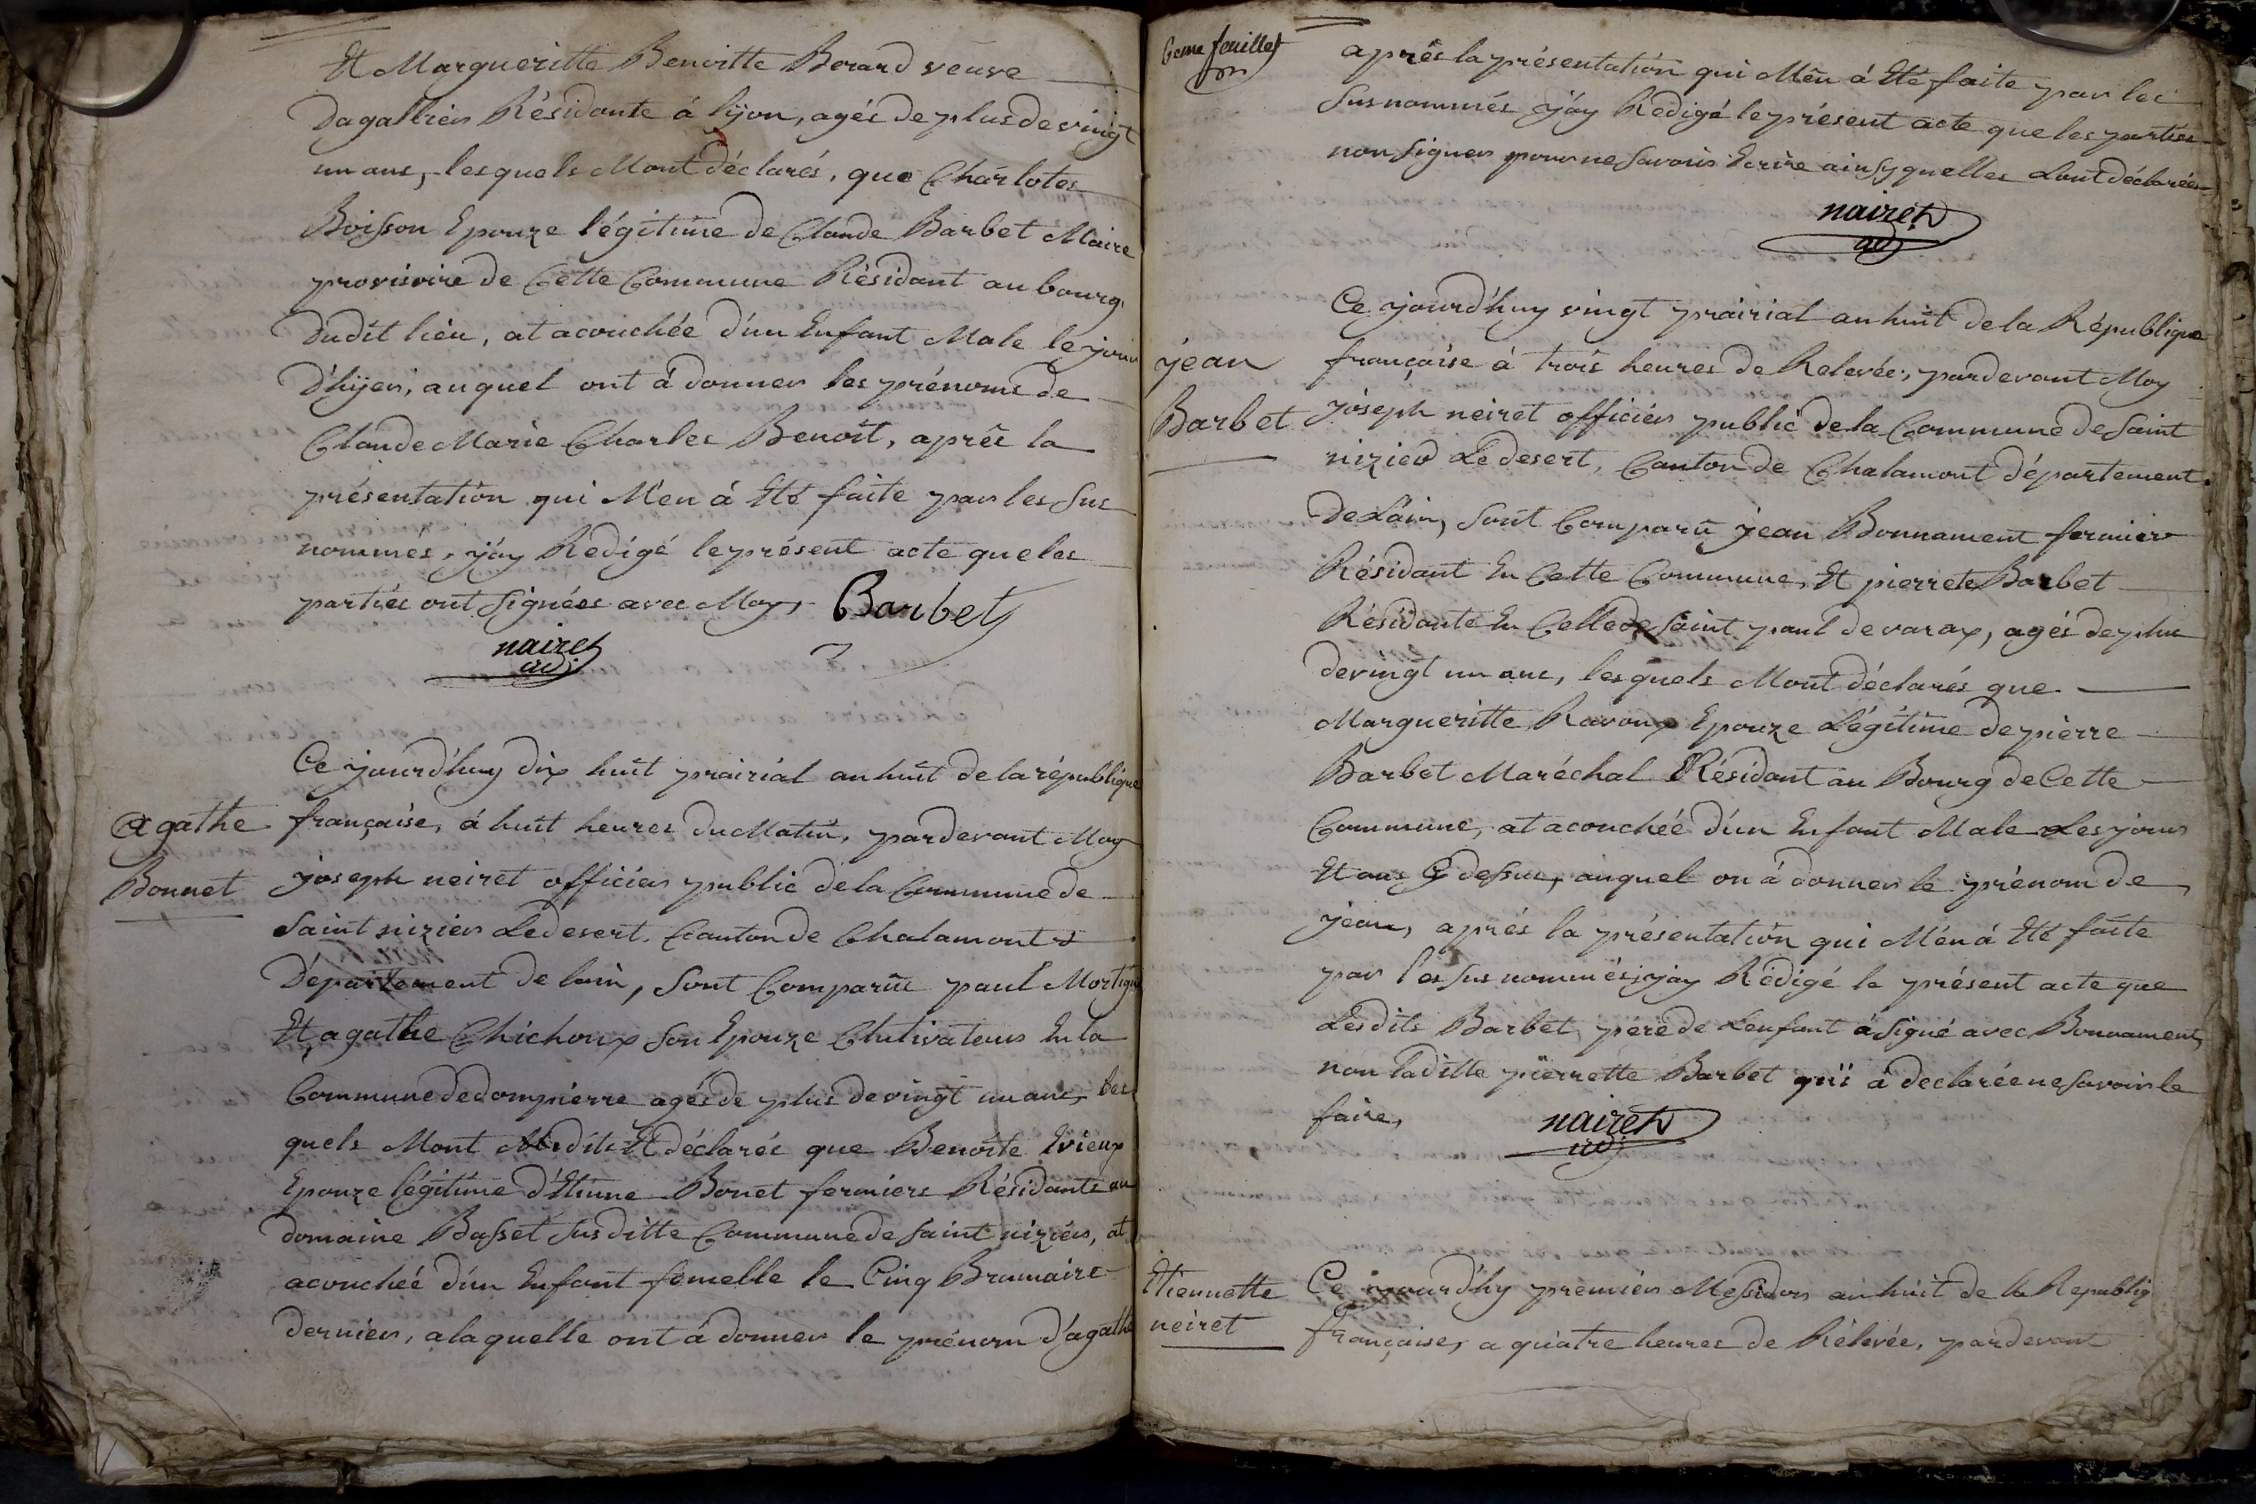 Et Margueritte Benoitte Berard veuve
Dagallier Résidante á lijon, agés de plus de vingt
un ans, lesquels Mont déclarés, que Charlotes
Boisson Epouze légitime de Claude Barbet Maire
provisoire de Cette Commune Résidant au bourg
Dudit lieu, at acouchée d'un Enfant Male le jour
D'hijer, auquel ont á donner les prénoms de
Claude Marie Charles Benoît, aprés la
présentation qui M'en á Eté faite par les sus
nommés, j'áy Redigé le présent acte que les
parties ont signées avec Moy, Barbet
nairet
Ce jourd'huy dix huit prairial an huit de la république
Agathe
Bonnet
française, á huit heures du Matin, pardevant Moy
joseph neiret officier public de la Commune de
Saint nizier Le desert, Canton de Chalamont
Département de lain, sont Comparût paul
Et agathe Chichoux son Epouze Clutivateur En la
Commune de dompierre agés de plus de vingt un ans, les
quels Mont dits Et déclarés que Benoite Evieux
Epouze légitime d'Etiene Bonet fermiers Résidants au
domaine Basset sus ditte Commune de saint nizier, at
acouchée d'un Enfant femelle le Cinq Brumaire
dernier, a laquelle ont á donner le prénom d'agathe
6eme feuillet
aprés la présentation qui M'en á Eté faite par les
susnommés j'áy Redigé le présent acte que les parties
non signer pour ne savoir Ecrire ainsy quelles Lont déclarées
nairet
Ce jourd'huy vingt prairial an huit de la République
jean
Barbet
française á trois heures de Relevée, pardevant Moy
joseph neiret officier public de la Commune de saint
nizier Le desert, Canton de Chalamont département
de Láin, sont Comparû jean Bonnament fermier
Résidant En Cette Commune, Et pierrete Barbet
Résidante En Celle de saint paul de varax, agés de plus
de vingt un ans, lesquels Mont déclarés que
Margueritte Ravoux Epouze Légitime de pierre
Barbet Maréchal Résidant au Bourg de Cette
Commune, at acouchée d'un Enfant Male Les jour
Et ans Cy dessus, auquel on á donner le prénom de
jean, aprés la présentation qui M'en á Eté faite
par les sus nommés, j'ay Rédigé le présent acte que
Lesdits Barbet pére de Lenfant á signé avec Bonnament,
non laditte pierrette Barbet qui á declarée ne savoir le
faire,
nairet
Etiennette
neiret
Ce jourd'hy premier Messidor an huit de la Republiq
française, a quatre heures de Rélevée, pardevant